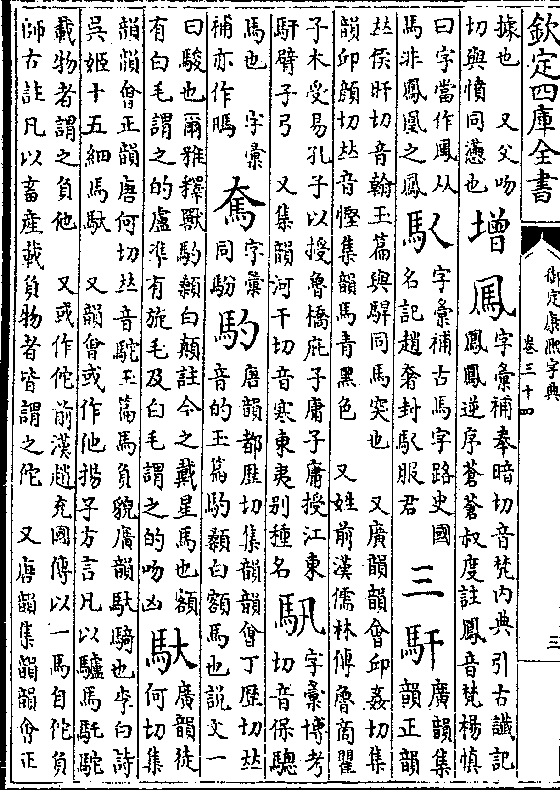 欽定四庫全書
御定康熙字典
卷三十四
三
據也　又父吻
切與憤同懣也
增
字彙補奉暗切音梵内典引古讖記
逆序蒼蒼叔度註　音梵楊慎
曰字當作　从
馬非鳳凰之鳳
字彙補古馬字路史國
名記趙奢封　服君
三
馯
廣韻集
韻正韻
𠀤侯旰切音翰玉篇與駻同馬突也　又廣韻韻會邱姦切集
韻邱顔切𠀤音慳集韻馬青黑色　又姓前漢儒林傳魯商瞿
子木受易孔子以授魯橋庇子庸子庸授江東
馯臂子弓　又集韻河干切音寒東夷别種名
字彙博考
切音保驄
馬也　字彙
補亦作
字彙
同馚
馰
唐韻都歷切集韻韻會丁歷切𠀤
音的玉篇馰顙白額馬也說文一
曰駿也爾雅釋獸馰顙白顛註今之戴星馬也額
有白毛謂之的盧準有旋毛及白毛謂之的吻凶
馱
廣韻徒
何切集
韻韻會正韻唐何切𠀤音駝玉篇馬負貌廣韻馱騎也李白詩
吳姬十五細馬馱　又韻會或作他揚子方言凡以驢馬馲駝
載物者謂之負他　又或作佗前漢趙充國傳以一馬自佗負
師古註凡以畜產載負物者皆謂之佗　又唐韻集韻韻會正